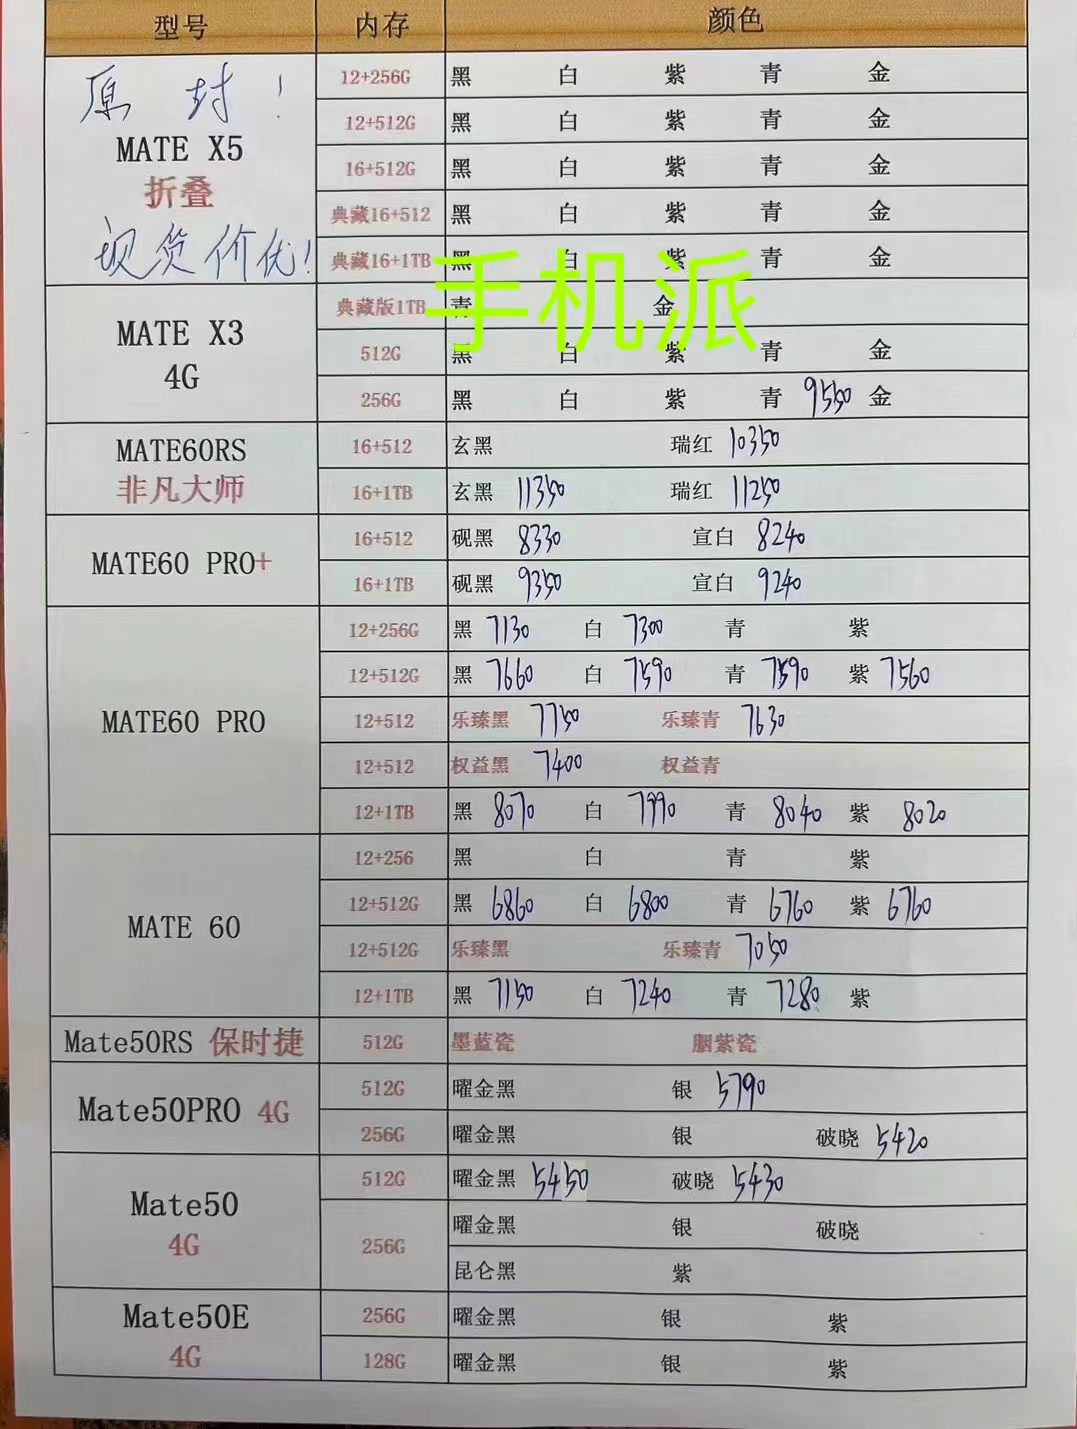 型号 内存 颜色
原封!
MATE X5
折叠
现货价优!
12+256G 黑 白 紫 青 金
12+512G 黑 白 紫 青 金
16+512G 黑 白 紫 青 金
典藏16+512 黑 白 紫 青 金
典藏16+1TB 黑 白 紫 青 金
手机派
MATE X3
4G
典藏版1TB 青 金
512G 黑 白 紫 青 金
256G 黑 白 紫 青 9550 金
MATE60RS
非凡大师
16+512 玄黑 瑞红 10350
16+1TB 玄黑 11350 瑞红 11250
MATE60 PRO+
16+512 砚黑 8330 宣白 8240
16+1TB 砚黑 9350 宣白 9240
MATE60 PRO
12+256G 黑 7130 白 7300 青 紫
12+512G 黑 7660 白 7590 青 7590 紫 7560
12+512 乐臻黑 7750 乐臻青 7630
12+512 权益黑 7400 权益青
12+1TB 黑 8070 白 7990 青 8040 紫 8020
MATE 60
12+256 黑 白 青 紫
12+512G 黑 6860 白 6800 青 6760 紫 6760
12+512G 乐臻黑 乐臻青 7050
12+1TB 黑 7150 白 7240 青 7280 紫
Mate50RS 保时捷 512G 墨蓝瓷 胭紫瓷
Mate50PRO 4G
512G 曜金黑 银 5790
256G 曜金黑 银 破晓 5420
Mate50
4G
512G 曜金黑 5450 破晓 5430
256G 曜金黑 银 破晓
昆仑黑 紫
Mate50E
4G
256G 曜金黑 银 紫
128G 曜金黑 银 紫